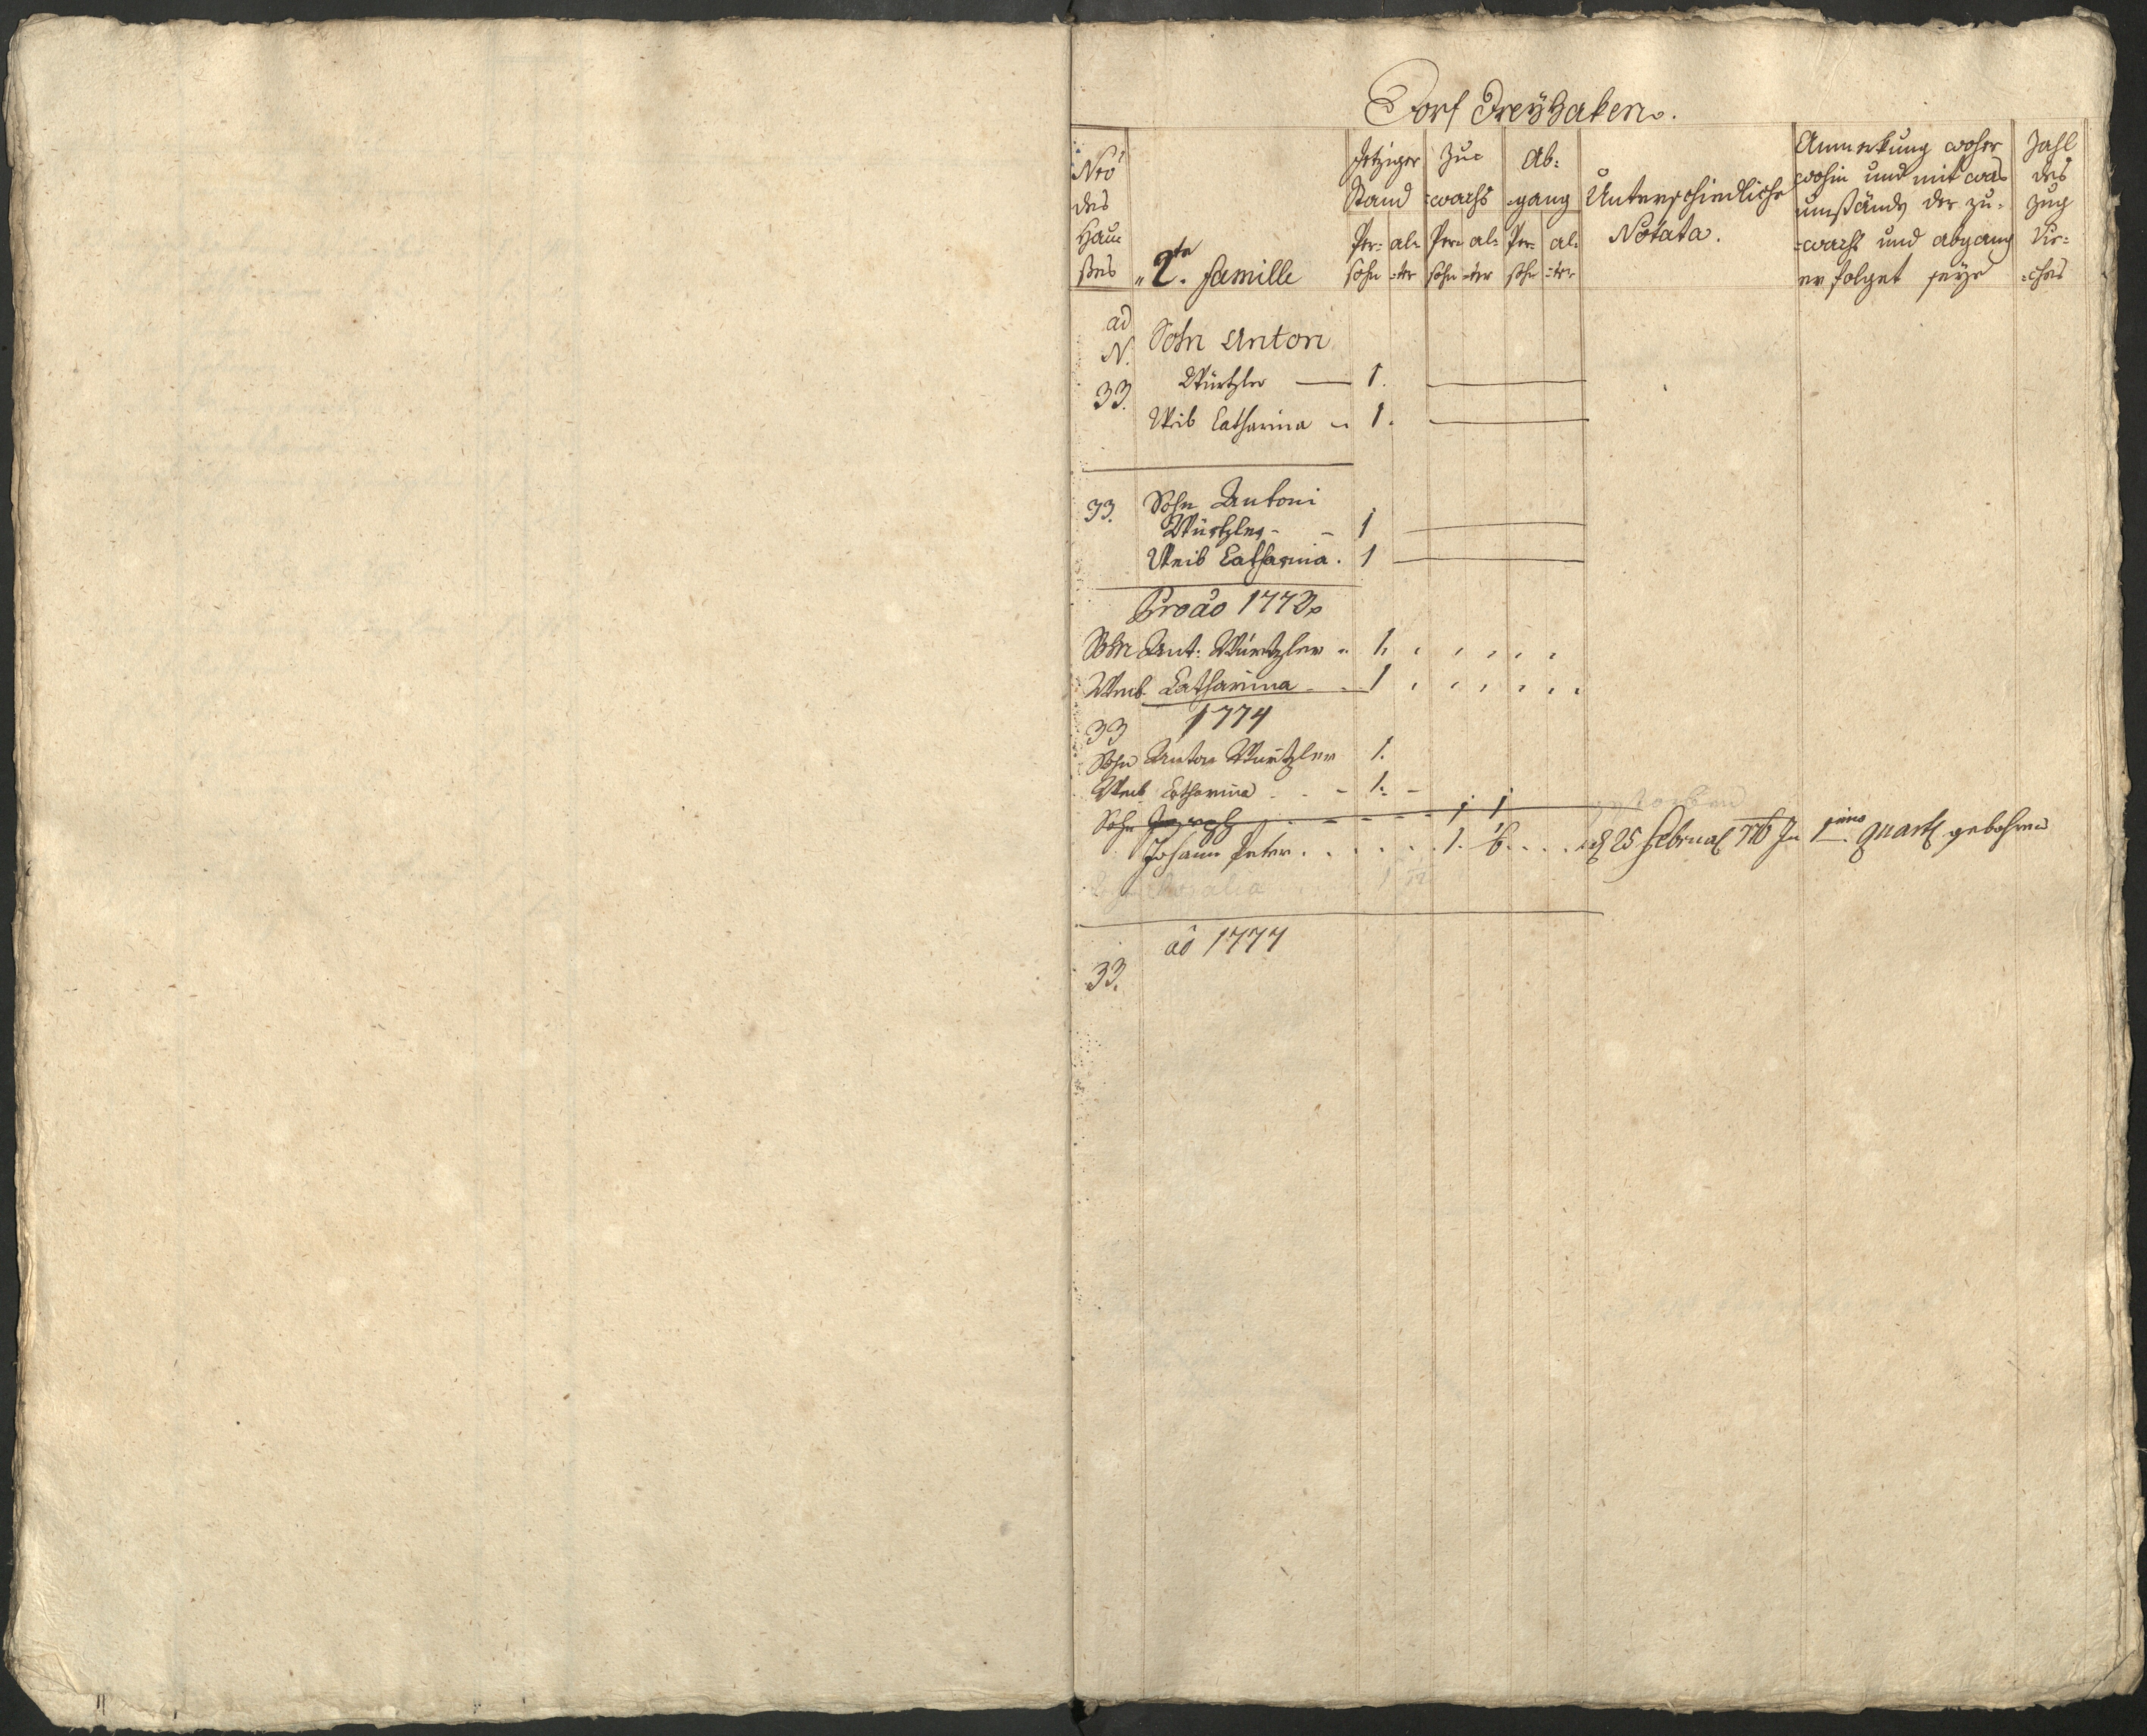 Dorf Dreyhaken.
Nro
des
Hau=
ßes
"2te. familie
Jetziger
Stand
Per=
sohn
al=
=ter
Zu=
=wachs
Per=
sohn
al=
=ter
Ab=
=gang
Per=
sohn
al=
=ter
Unterschiedliche
Notata.
Anmerkung woher
wohin und mit was
umstände der zu=
=wachs und abgang
erfolget seye
Zahl
des
Zug
Vie=
=hes
ad
N.
33.
Sohn Anton
Würtzler — 1.
Weib Catharina 1.
33. Sohn Antoni
Würtzler - - 1
Weib Catharina. 1
Pro ao 1773
Sohn Ant: Würtzler 1.
Weib Catharina 1
33 1774
Sohn Anton Würtzler 1.
Weib Catharina - - 1. -
Sohn Joseph - - - - 1 1 gestorben
Johann Peter . . . . . . 1. 1/6 . . . . d 25 Februar 776 In 1mo quart gebohren
Rosalia 1
ao 1777
33.